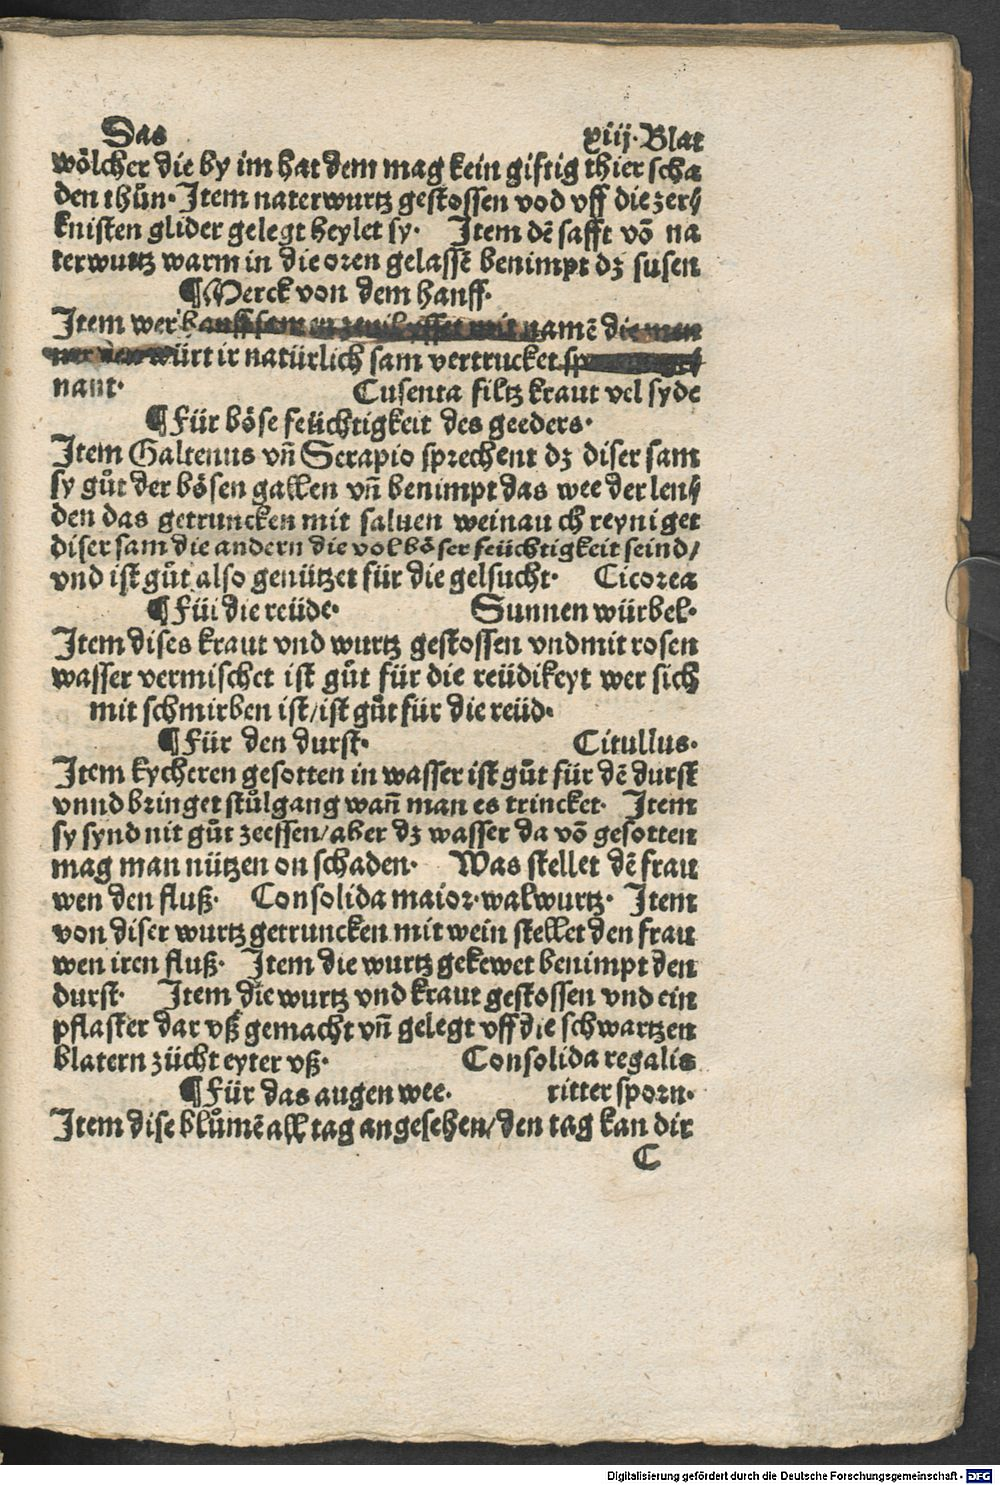 Das xiij. Blat
wölcher die by im hat dem mag kein giftig thier scha
den thůn. Item naterwurtz gestossen vod vff die zer⸗
knisten glider gelegt heylet sy. Item dē safft vō na
terwurtz warm in die oren gelassē benimpt dz susen
¶Merck von dem hanff.
Item wer hanff sam namē die
würt ir natürlich sam vertrucket
nant. Cusenta filtz kraut vel syde
¶Für böse feüchtigkeit des geeders.
Item Galtenus vñ Serapio sprechent dz diser sam
sy gůt der bösen gallen vñ benimpt das wee der len⸗
den das getruncken mit saluen wein auch reyniget
diser sam die andern die vol böser feüchtigkeit seind/
vnd ist gůt also genützet für die gelsucht. Cicorea
¶Für die reüde. Sunnen würbel.
Item dises kraut vnd wurtz gestossen vnd mit rosen
wasser vermischet ist gůt für die reüdikeyt wer sich
mit schmirben ist/ist gůt für die reüd.
¶Für den durst. Citullus.
Item kycheren gesotten in wasser ist gůt für dē durst
vnnd bringet stůlgang wañ man es trincket. Item
sy synd nit gůt zeessen/aber dz wasser da vō gesotten
mag man nützen on schaden. Was stellet dē frau
wen den fluß. Consolida maior.walwurtz. Item
von diser wurtz getruncken mit wein stellet den frau
wen iren fluß. Item die wurtz gekewet benimpt den
durst. Item die wurtz vnd kraut gestossen vnd ein
pflaster dar vß gemacht vñ gelegt vff die schwartzen
blatern zücht eyter vß. Consolida regalis
¶Für das augen wee. ritter sporn.
Item dise blůmē all tag angesehen/den tag kan dir
C
Digitalisierung gefördert durch die Deutsche Forschungsgemeinschaft - DFG